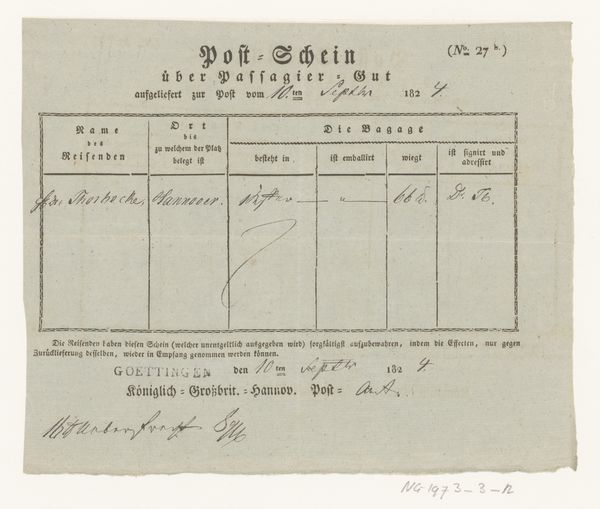 Post-Schein
(No. 27 b.)
über Passagier-Gut
aufgeliefert zur Post vom 10.ten Septbr 1824.
Name des Reisenden
Ort bis zu welchem der Platz belegt ist
Die Bagage
besteht in
ist emballirt
wiegt
ist signirt und adressirt
Thorbecke, Hannover. — " — 66 D. Th.
Die Reisenden haben diesen Schein (welcher unentgeltlich ausgegeben wird) sorgfältigst aufzubewahren, indem die Effecten, nur gegen
Zurücklieferung desselben, wieder in Empfang genommen werden können.
GOETTINGEN den 10ten Septbr 1824.
Königlich-Großbrit.-Hannov. Post-Amt.
NG-1973-3-12